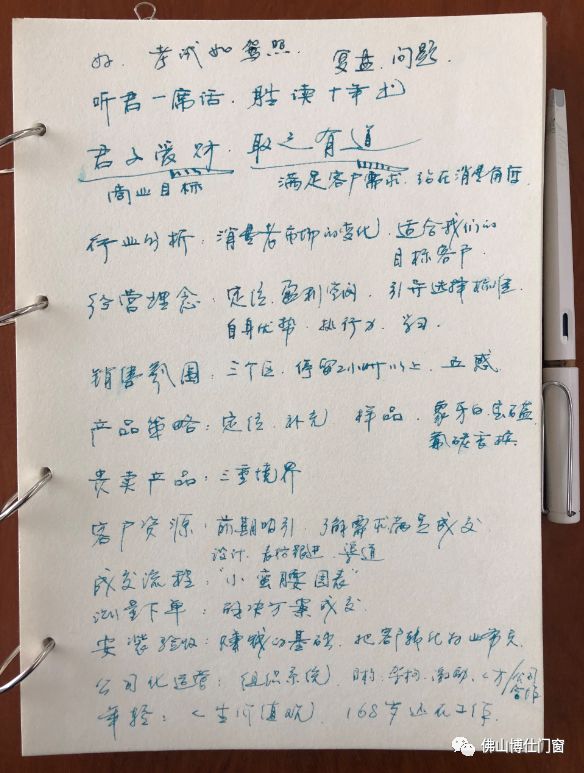 好. 考试如驾照. 复盘. 问题.
听君一席话. 胜读十年书
君子爱财. 取之有道
商业目标 满足客户需求. 站在消费角度
行业分析: 消费者市场的变化. 适合我们的
目标客户.
经营理念: 定位. 盈利空间. 引导选择标准.
自身优势. 执行力. 学习
销售氛围: 三个区. 停留2小时以上. 五感.
产品策略: 定位. 补充 样品. 象牙白. 宝石蓝
氟碳
贵卖产品: 三重境界
客户资源: 前期吸引. 了解需求满足成交
设计. 渠道
成交流程: "小蛮腰图表"
测量下单: 解决方案成交
安装验收: 赚钱的基础. 把客户转化为
公司化运营: 组织系统). 激励. 公司
合作
年轻: 价值观) 168岁还在工作
佛山博仕门窗